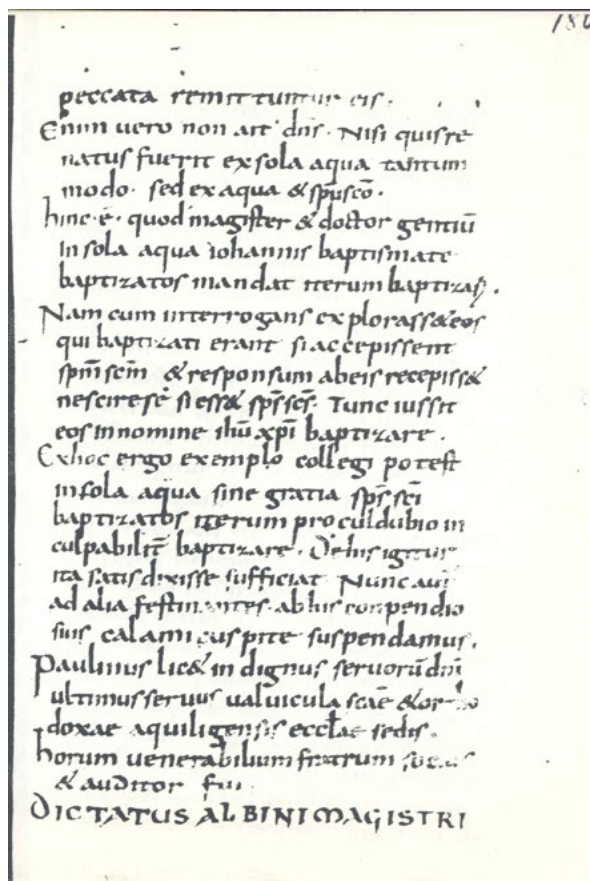 180
peccata remittuntur eis.
Enim uero non ait dn̄s. Nisi quis re
natus fuerit ex sola aqua tantum
modo. sed ex aqua & sp̄u sc̄o.
hinc. ē. quod magister & doctor gentiū
in sola aqua iohannis baptismate
baptizatos mandat iterum baptizari.
Nam cum interrogans explorass& eos
qui baptizati erant si accepissent
sp̄m sc̄m & responsum ab eis recepiss&
nescire se si ess& sp̄s sc̄s. Tunc iussit
eos in nomine ih̄u xp̄i baptizare.
Ex hoc ergo exemplo collegi potest
in sola aqua sine gratia sp̄s sc̄i
baptizatos iterum procul dubio in
culpabilit̄ baptizare. De his igitur
ita satis dixisse sufficiat Nunc
ad alia festinantes. ab his conpendio
calami cuspite suspendamus.
Paulinus lic& indignus seruorū dn̄i
ultimus seruus ualuicula sc̄ae & ortho
doxae aquiligensis eccl̄ae sedis.
horum uenerabilium fratrum socius
& auditor fui.
DICTATUS ALBINI MAGISTRI